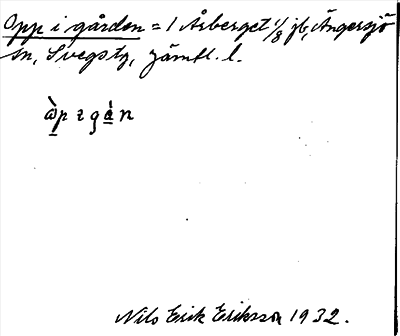 Opp i gården = 1 Årberget 1/8 jb, Ängersjö
sn, Svegs tg, Jämtl. l.
ὼp ɩ gá̱n
Nils Erik Eriksson 1932.